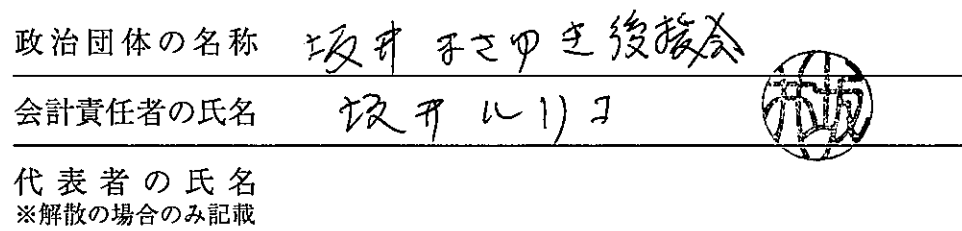 政治団体の名称 坂井まさゆき後援会
会計責任者の氏名 坂井ルリコ
代表者の氏名
※解散の場合のみ記載